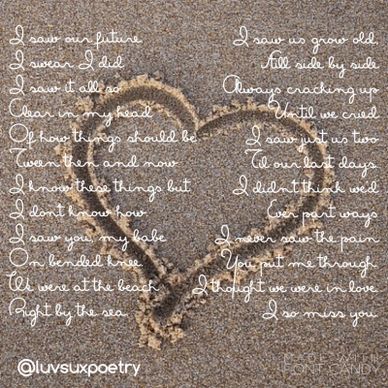 I saw our future
I swear I did
I saw it all so
Clear in my head
Of how things should be
'Tween then and now
I know these things but
I don't know how
I saw you, my babe
On bended knee
We were at the beach
Right by the sea
I saw us grow old,
All side by side
Always cracking up
Until we cried
I saw just us two
'Til our last days
I didn't think we'd
Ever part ways
I never saw the pain
You put me through
I thought we were in love
I so miss you
@luvsuxpoetry
MADE WITH
FONT CANDY